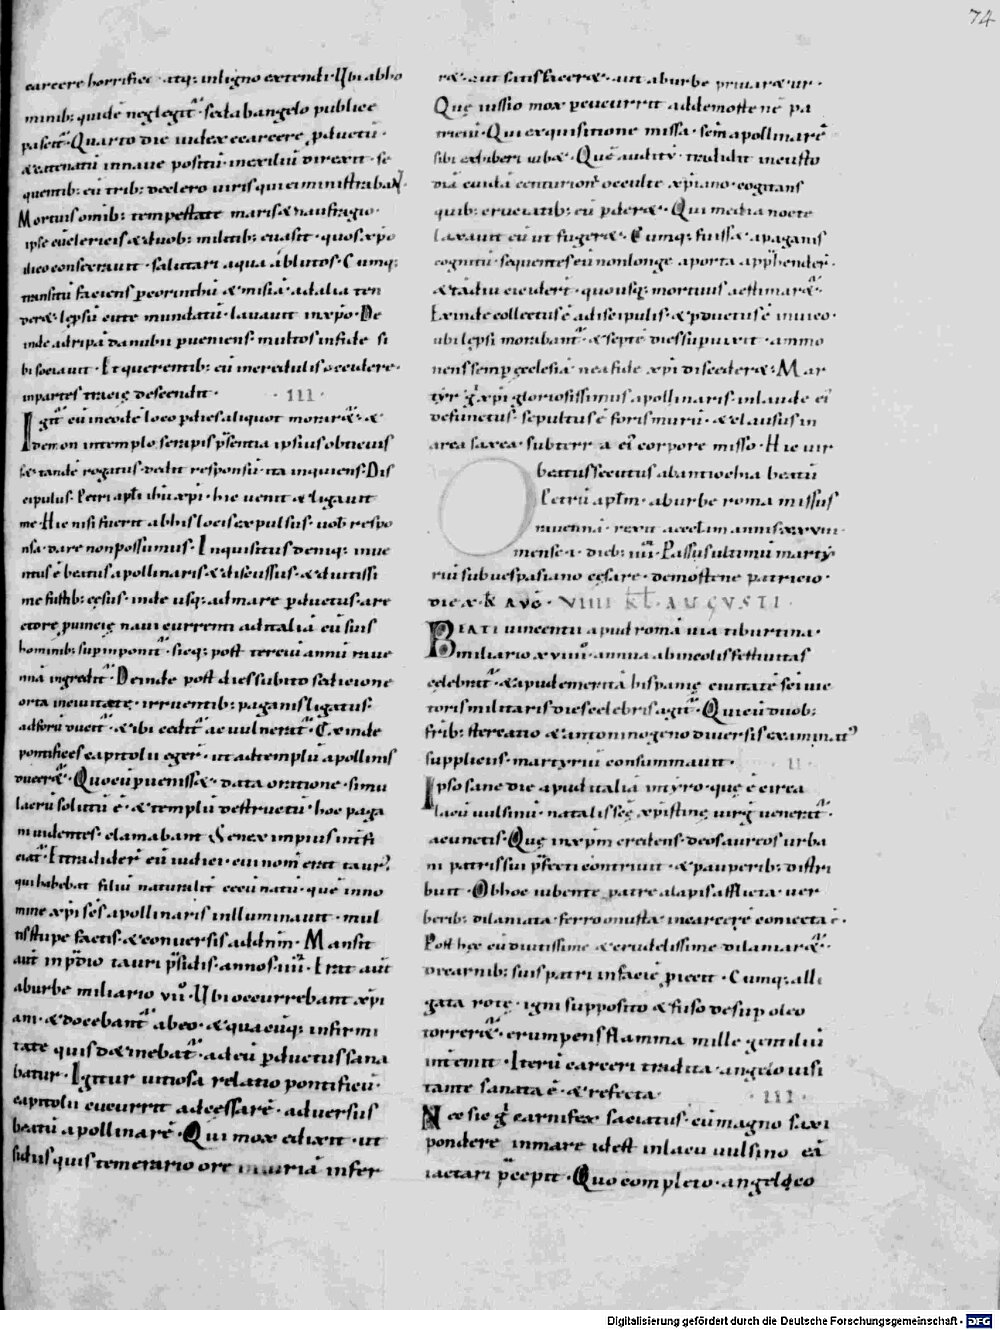 74
carcere horrifico atq; inligno extendi. Ubi ab ho
minib; quidē neglegit᷑. sed ab angelo publice
pascit᷑. Quarto die iudex e carcere ꝑductū.
& catenatū in naue positū in exiliū direxit. se
quentib; eū trib; de clero uiris qui ei ministrabaɴ̄t.
Mortuis omib; tempestate maris & naufragio.
ipse cū clericis & duob; militib; euasit. quos xp̄o
ilico consecrauit. salutari aqua ablutos. Cumq;
transitū faciens ꝑ corinthū & misiā. ad alia ten
der&. lepsū cute mundatū. lauauit in xp̄o. De
inde ad ripā danubii pueniens. multos in fide si
bi sociauit. Et querentib; eū incredulis occidere.
in partes traciȩ descendit. · III ·
Igit᷑ cū in eodē loco ꝑ dies aliquot morar&᷑. &
demon in templo serapis p̄sentia ipsius obticuis
s&. tandē rogatus. dedit responsū. ita inquiens. Dis
cipulus. Petri apl̄i ihū xp̄i. hic uenit & ligauit
me. Hic nisi fuerit ab his locis expulsus. uob̄ respo
nsa dare non possumus. Inquisitus deniq; inue
ntus ē beatus apollinaris. & discussus. & diutissi
me fustib; cȩsus. inde usq; ad mare ꝑductus. are
ctore ꝓuinciȩ naui currenti ad italiā cū suis
hominib; sup inponit᷑. sicq; post terciū annū raue
nnā ingredit᷑. Deinde post dies subito seditione
orta in ciuitate. irruentib; paganis ligatus.
ad forū ducit᷑. & ibi cedit᷑ ac uulnerat᷑. Exinde
pontifices capitolii eger̄. ut ad templū apollinis
ducer&᷑. Quo cū puenisset. data oratione. simu
lacrū solutū ē. & templū destructū. hoc paga
ni uidentes. clamabant Senex impius intfi
ciat᷑. Et tradider̄ eū iudici. cui nom̄ erat taur᷒
qui habebat filiū naturalit̄ cecū natū. quē in no
mine xp̄i sc̄s apollinaris inlluminauit. mul
tis stupefactis. & conuersis ad dn̄m. Mansit
aut̄ in p̄dio tauri p̄sidis. annos. IIII. Erat aut̄
ab urbe miliario VI. Ubi occurrebant xp̄i
ani. & docebant᷑ ab eo. & quacūq; infirmi
tate quis d&inebat᷑. ad eū ꝑductus sana
batur. Igitur uitiosa relatio pontificū.
capitolii cucurrit ad cessarē. aduersus
beatū apollinarē. Qui mox edixit. ut
si dus quis temerario ore iniuriā infer
r&. aut satisfacer&. aut ab urbe priuar&ur.
Quȩ iussio mox ꝑcucurrit ad demostenē pa
triciū. Qui exquisitione missa. sc̄m apollinarē
sibi exhiberi iub&. Quē auditū. tradidit in custo
diā cuidā centurioni occulte xp̄iano. cogitans
quib; cruciatib; eū ꝑder&. Qui media nocte
laxauit eū ut fuger&. Cumq; fuiss& a paganis
cognitū. sequentes eū non longe a porta app̄hender̄.
& tādiu ceciderī. quousq; mortuus aestimar&᷑.
Exinde collectus ē a discipulis. & ꝑductus ē in uico.
ubi lepsi morabant᷑. & septē dies supuixit. ammo
nens semꝑ ecclesiā ne a fide xp̄i disceder&. Mar
tyr g̊ xp̄i gloriosissimus apollinaris. in laude ei᷒
defunctus. sepultus ē foris murū. & clausus in
arca saxea. subterr a ei᷒ corpore misso. Hic uir
beatus secutus ab antiochia beatū
Petrū apl̄m. ab urbe roma missus
rauennā. rexit ecclam annis. XXVIII.
mense. I. dieb; IIII. Passus ultimū marty
riū sub uespasiano cȩsare. demostene patricio.
die. X. kl̄ AUG. VIIII kl̄. AUGUSTI.
BEATI uincentii apud romā uia tiburtina.
miliario XVIIII. annua ab incolis festiuitas
celebrat᷑. & apud emeritā hispaniȩ ciuitatē sc̄i uic
toris militaris dies celebris agit᷑. Qui cū duob;
frib; stercatio & antoninogeno diuersis examinat᷒
suppliciis. martyriū consummauit. II
Ipso sane die apud italiā in tyro. quȩ ē circa
lacū uulsinū. natalis sc̄ȩ xp̄istinȩ uirg̅ uenerat᷑.
a cunctis. Quȩ in xp̄m credens. deos aureos urba
ni patris sui p̄fecti contriuit. & pauperib; distri
buit. Ob hoc iubente patre alapis afflicta. uer
berib; dilaniata. ferro onusta. in carcerē coniecta ē.
Post hȩc cū diutissime & crudelissime dilaniar&᷑.
de carnib; suis patri in faciē piecit. Cumq; alli
gata rotȩ. igni supposito & fuso desup oleo
torrer&᷑. erumpens flamma mille gentiliū
intemit. Iterū carceri tradita. angelo uisi
tante sanata ē. & refecta. · III ·
Nec sic g̊ carnifex saciatus. cū magno saxi
pondere in mare idest in lacu uulsino eā
iactari p̄cepit. Quo completo. angelico
Digitalisierung gefördert durch die Deutsche Forschungsgemeinschaft · DFG